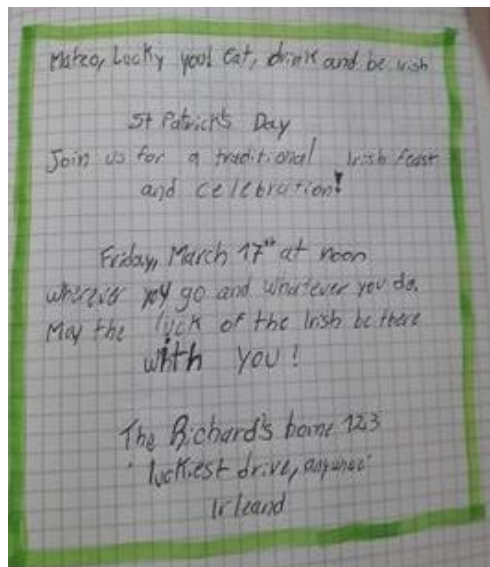 Mateo, Lucky you! Eat, drink and be irish
St Patrick's Day
Join us for a traditional Irish feast
and celebration!
Friday, March 17th at noon
wherever you go and whatever you do.
May the luck of the Irish be there
whith you!
The Richard's home 123
luckiest drive,
Irleand